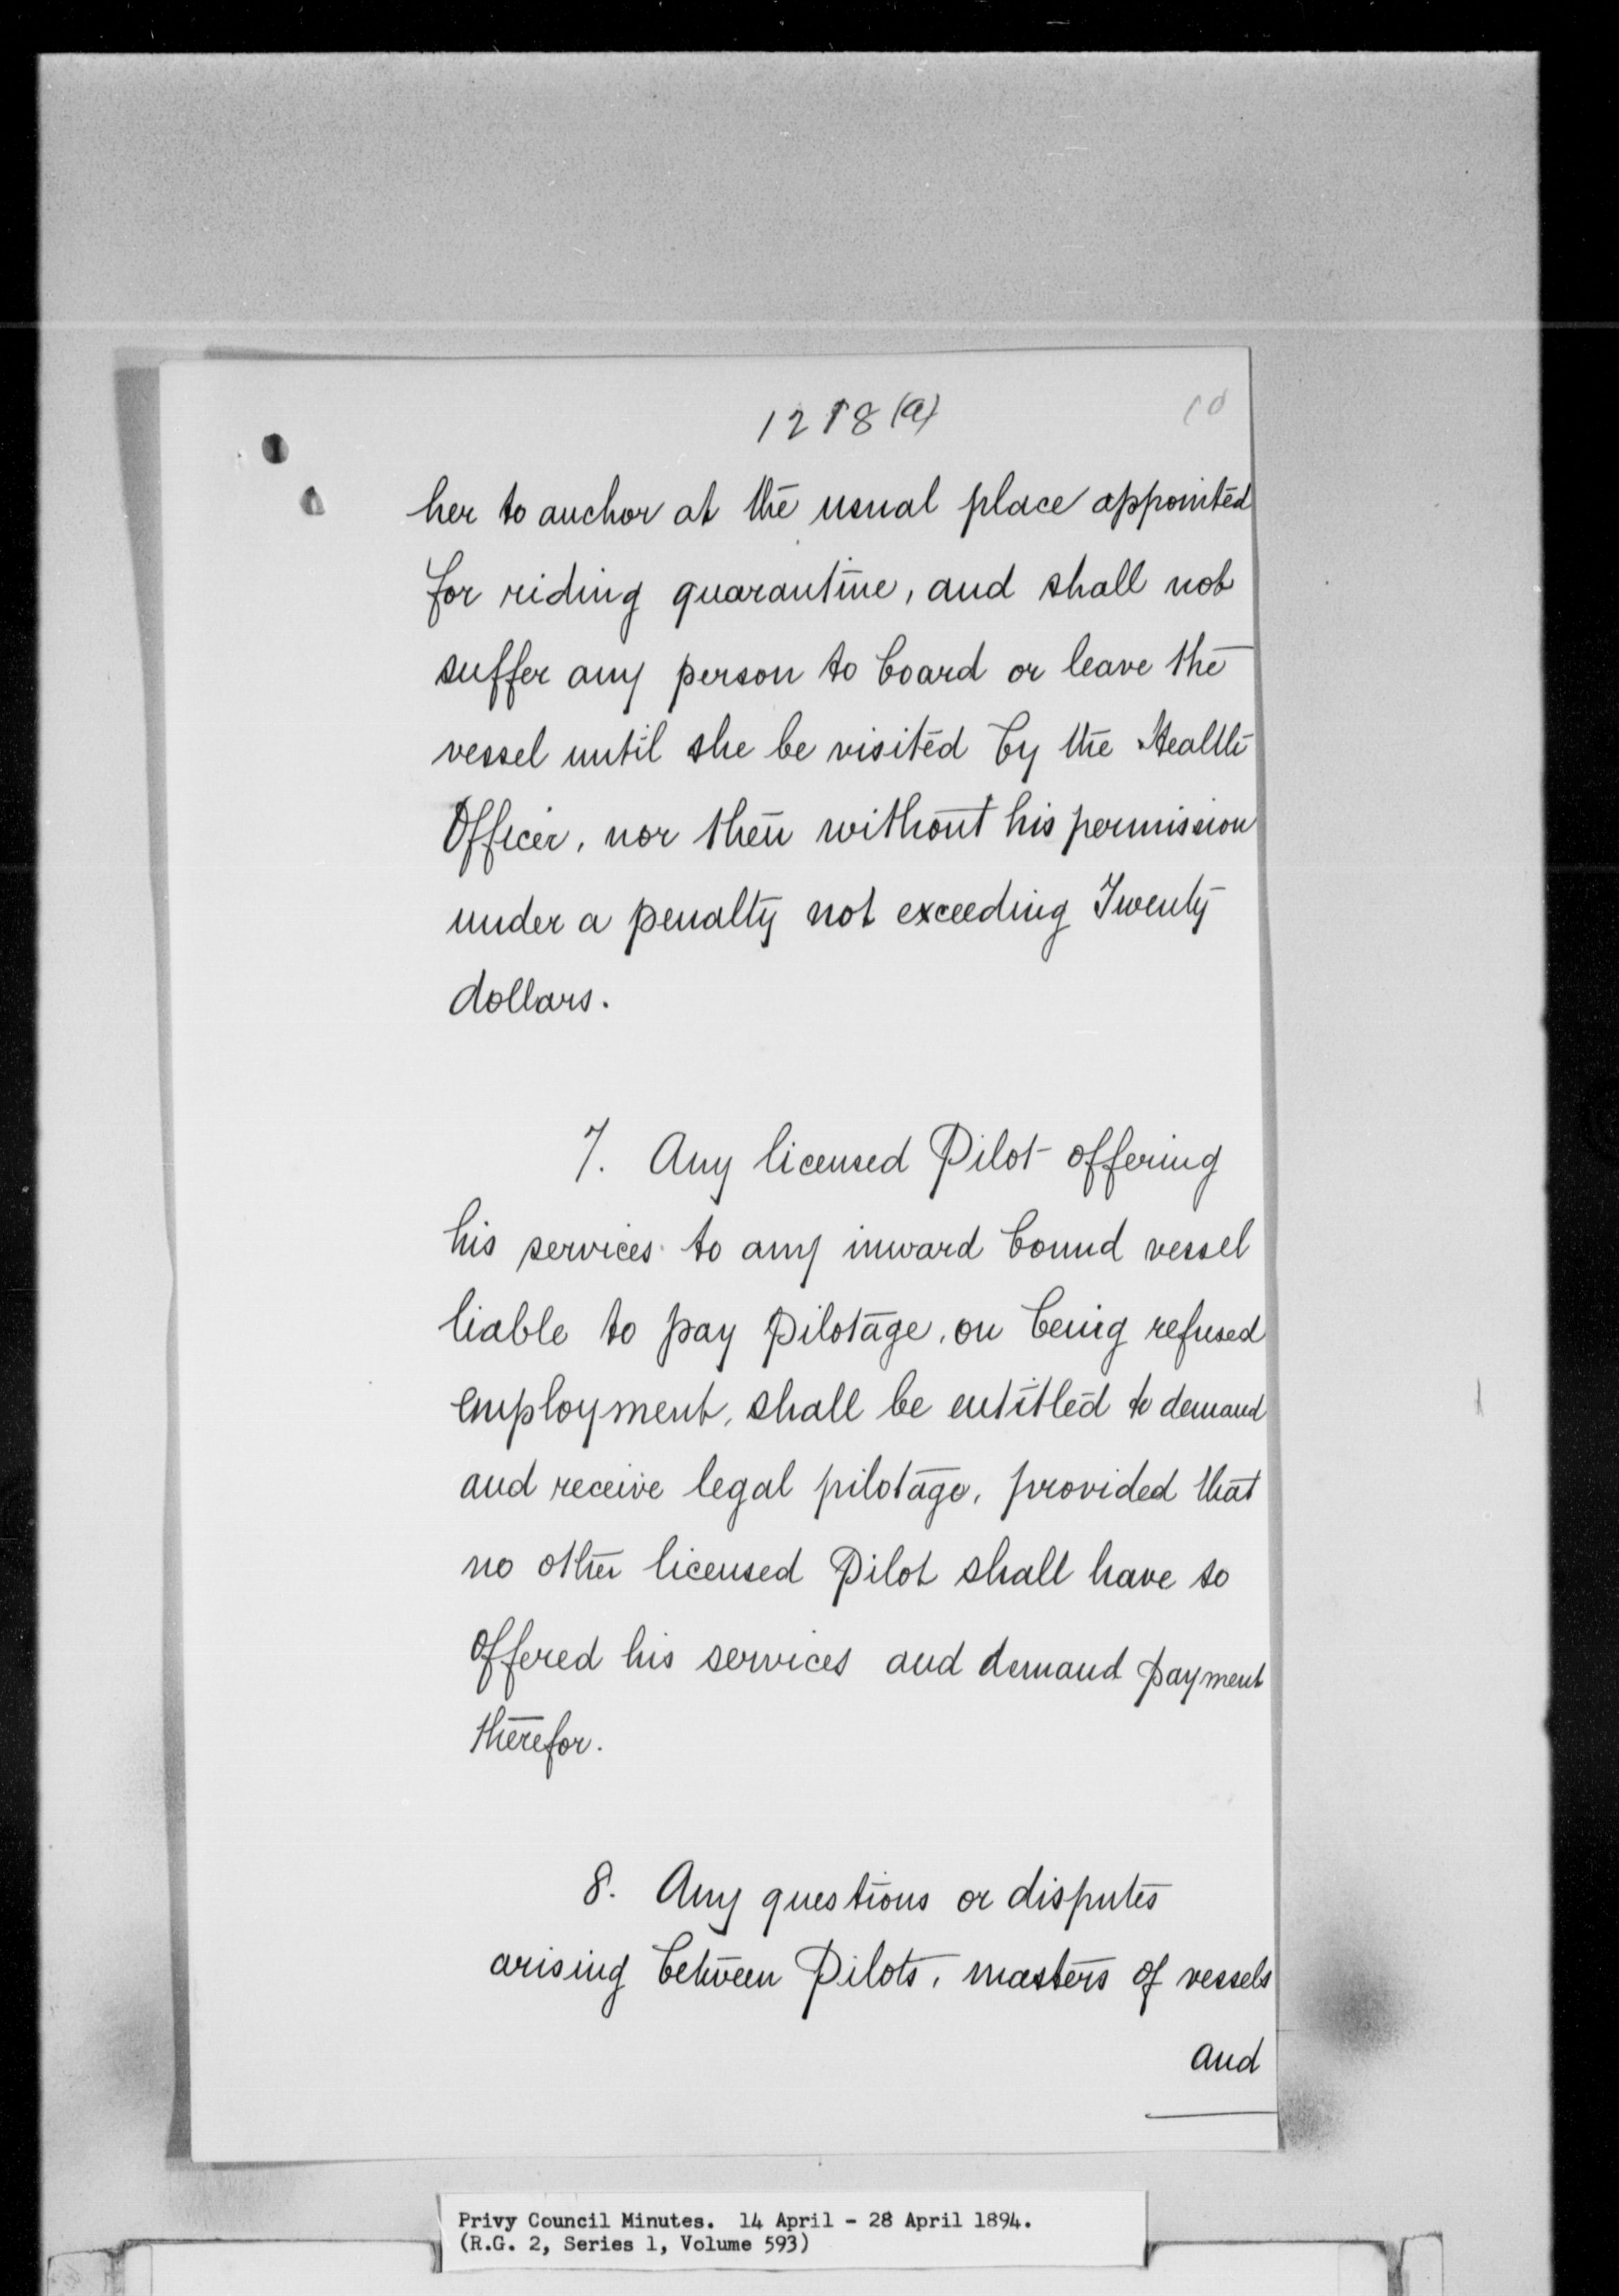 1218 (a)
10
her to anchor at the usual place appointed
for riding quarantine, and shall not
suffer any person to board or leave the
vessel until she be visited by the Health
Officer, nor then without his permission
under a penalty not exceeding Twenty
dollars.
7. Any licensed Pilot offering
his services to any inward bound vessel
liable to pay pilotage, on being refused
employment, shall be entitled to demand
and receive legal pilotage, provided that
no other licensed Pilot shall have so
offered his services and demand payment
therefor.
8. Any questions or disputes
arising between Pilots, masters of vessels
and
Privy Council Minutes. 14 April - 28 April 1894.
(R.G. 2, Series 1, Volume 593)